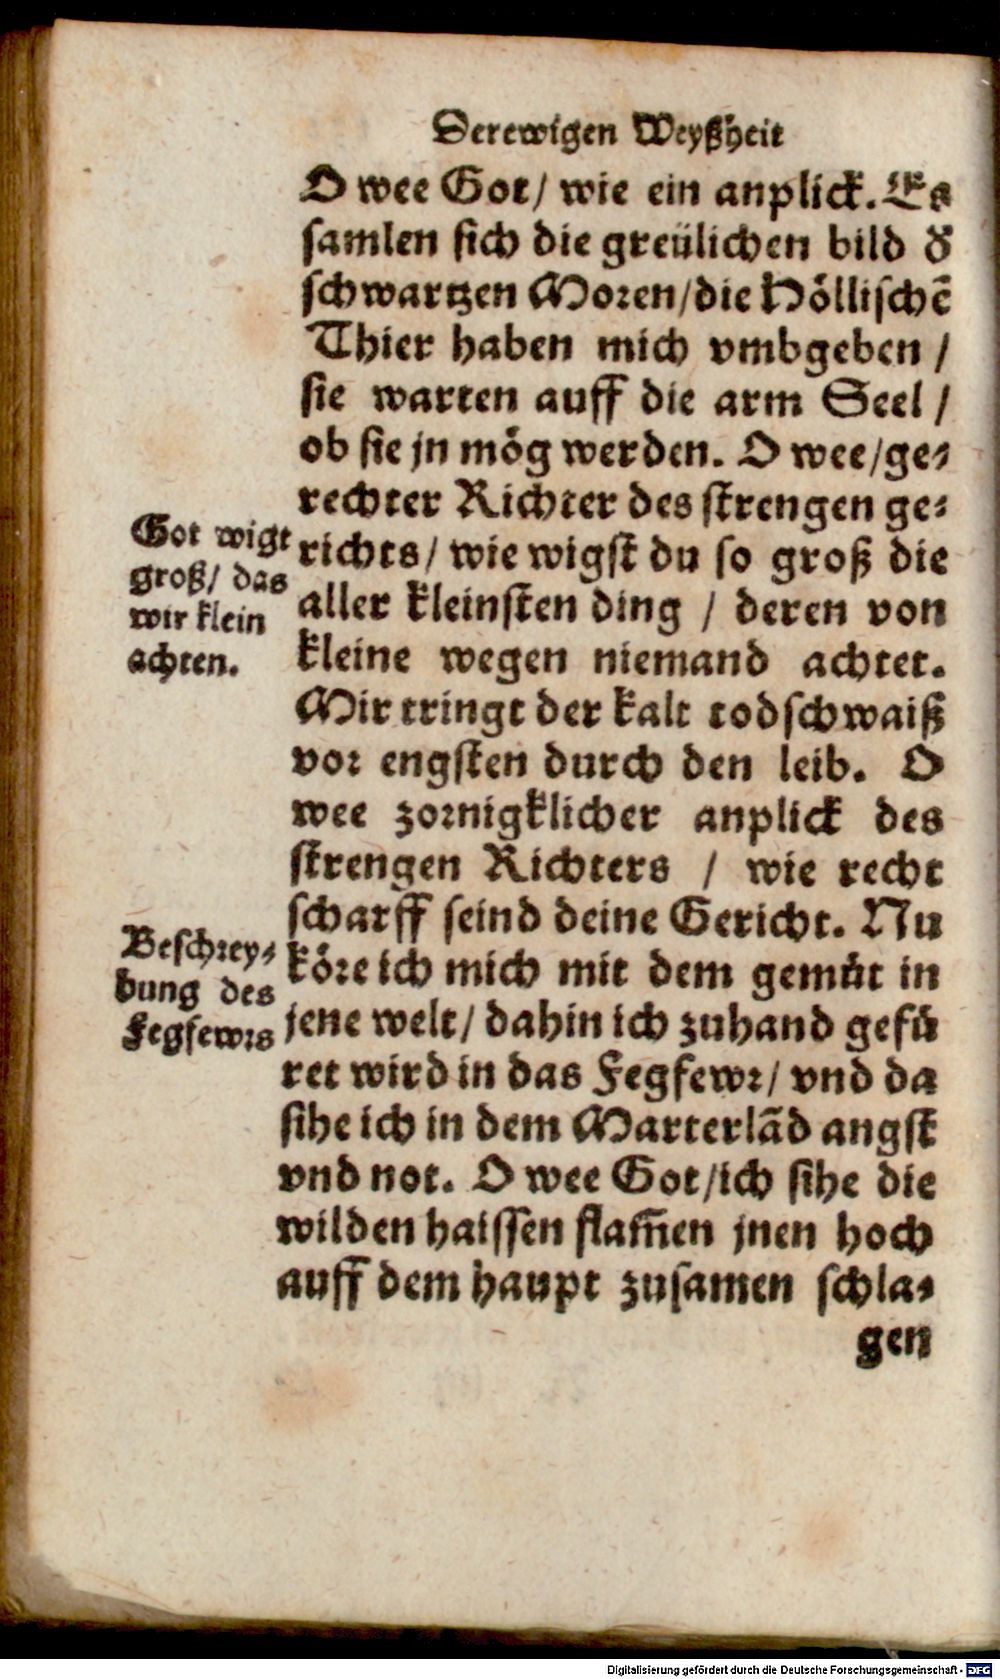 Der ewigen Weyßheit
O wee Got/ wie ein anplick. Es
samlen sich die greülichen bild d̕
schwartzen Moren/die Höllischē
Thier haben mich vmbgeben /
sie warten auff die arm Seel /
ob sie jn mög werden. O wee/ge-
rechter Richter des strengen ge-
richts/ wie wigst du so groß die
aller kleinsten ding / deren von
kleine wegen niemand achtet.
Mir tringt der kalt todschwaiß
vor engsten durch den leib. O
wee zornigklicher anplick des
strengen Richters / wie recht
scharff seind deine Gericht. Nu
köre ich mich mit dem gemüt in
jene welt/ dahin ich zuhand gefü
ret wird in das Fegfewr/ vnd da
sihe ich in dem Marterlād angst
vnd not. O wee Got/ich sihe die
wilden haissen flam̄en jnen hoch
auff dem haupt zusamen schla-
gen
Got wigt
groß/ das
wir klein
achten.
Beschrey-
bung des
Fegfewrs
Digitalisierung gefördert durch die Deutsche Forschungsgemeinschaft - DFG